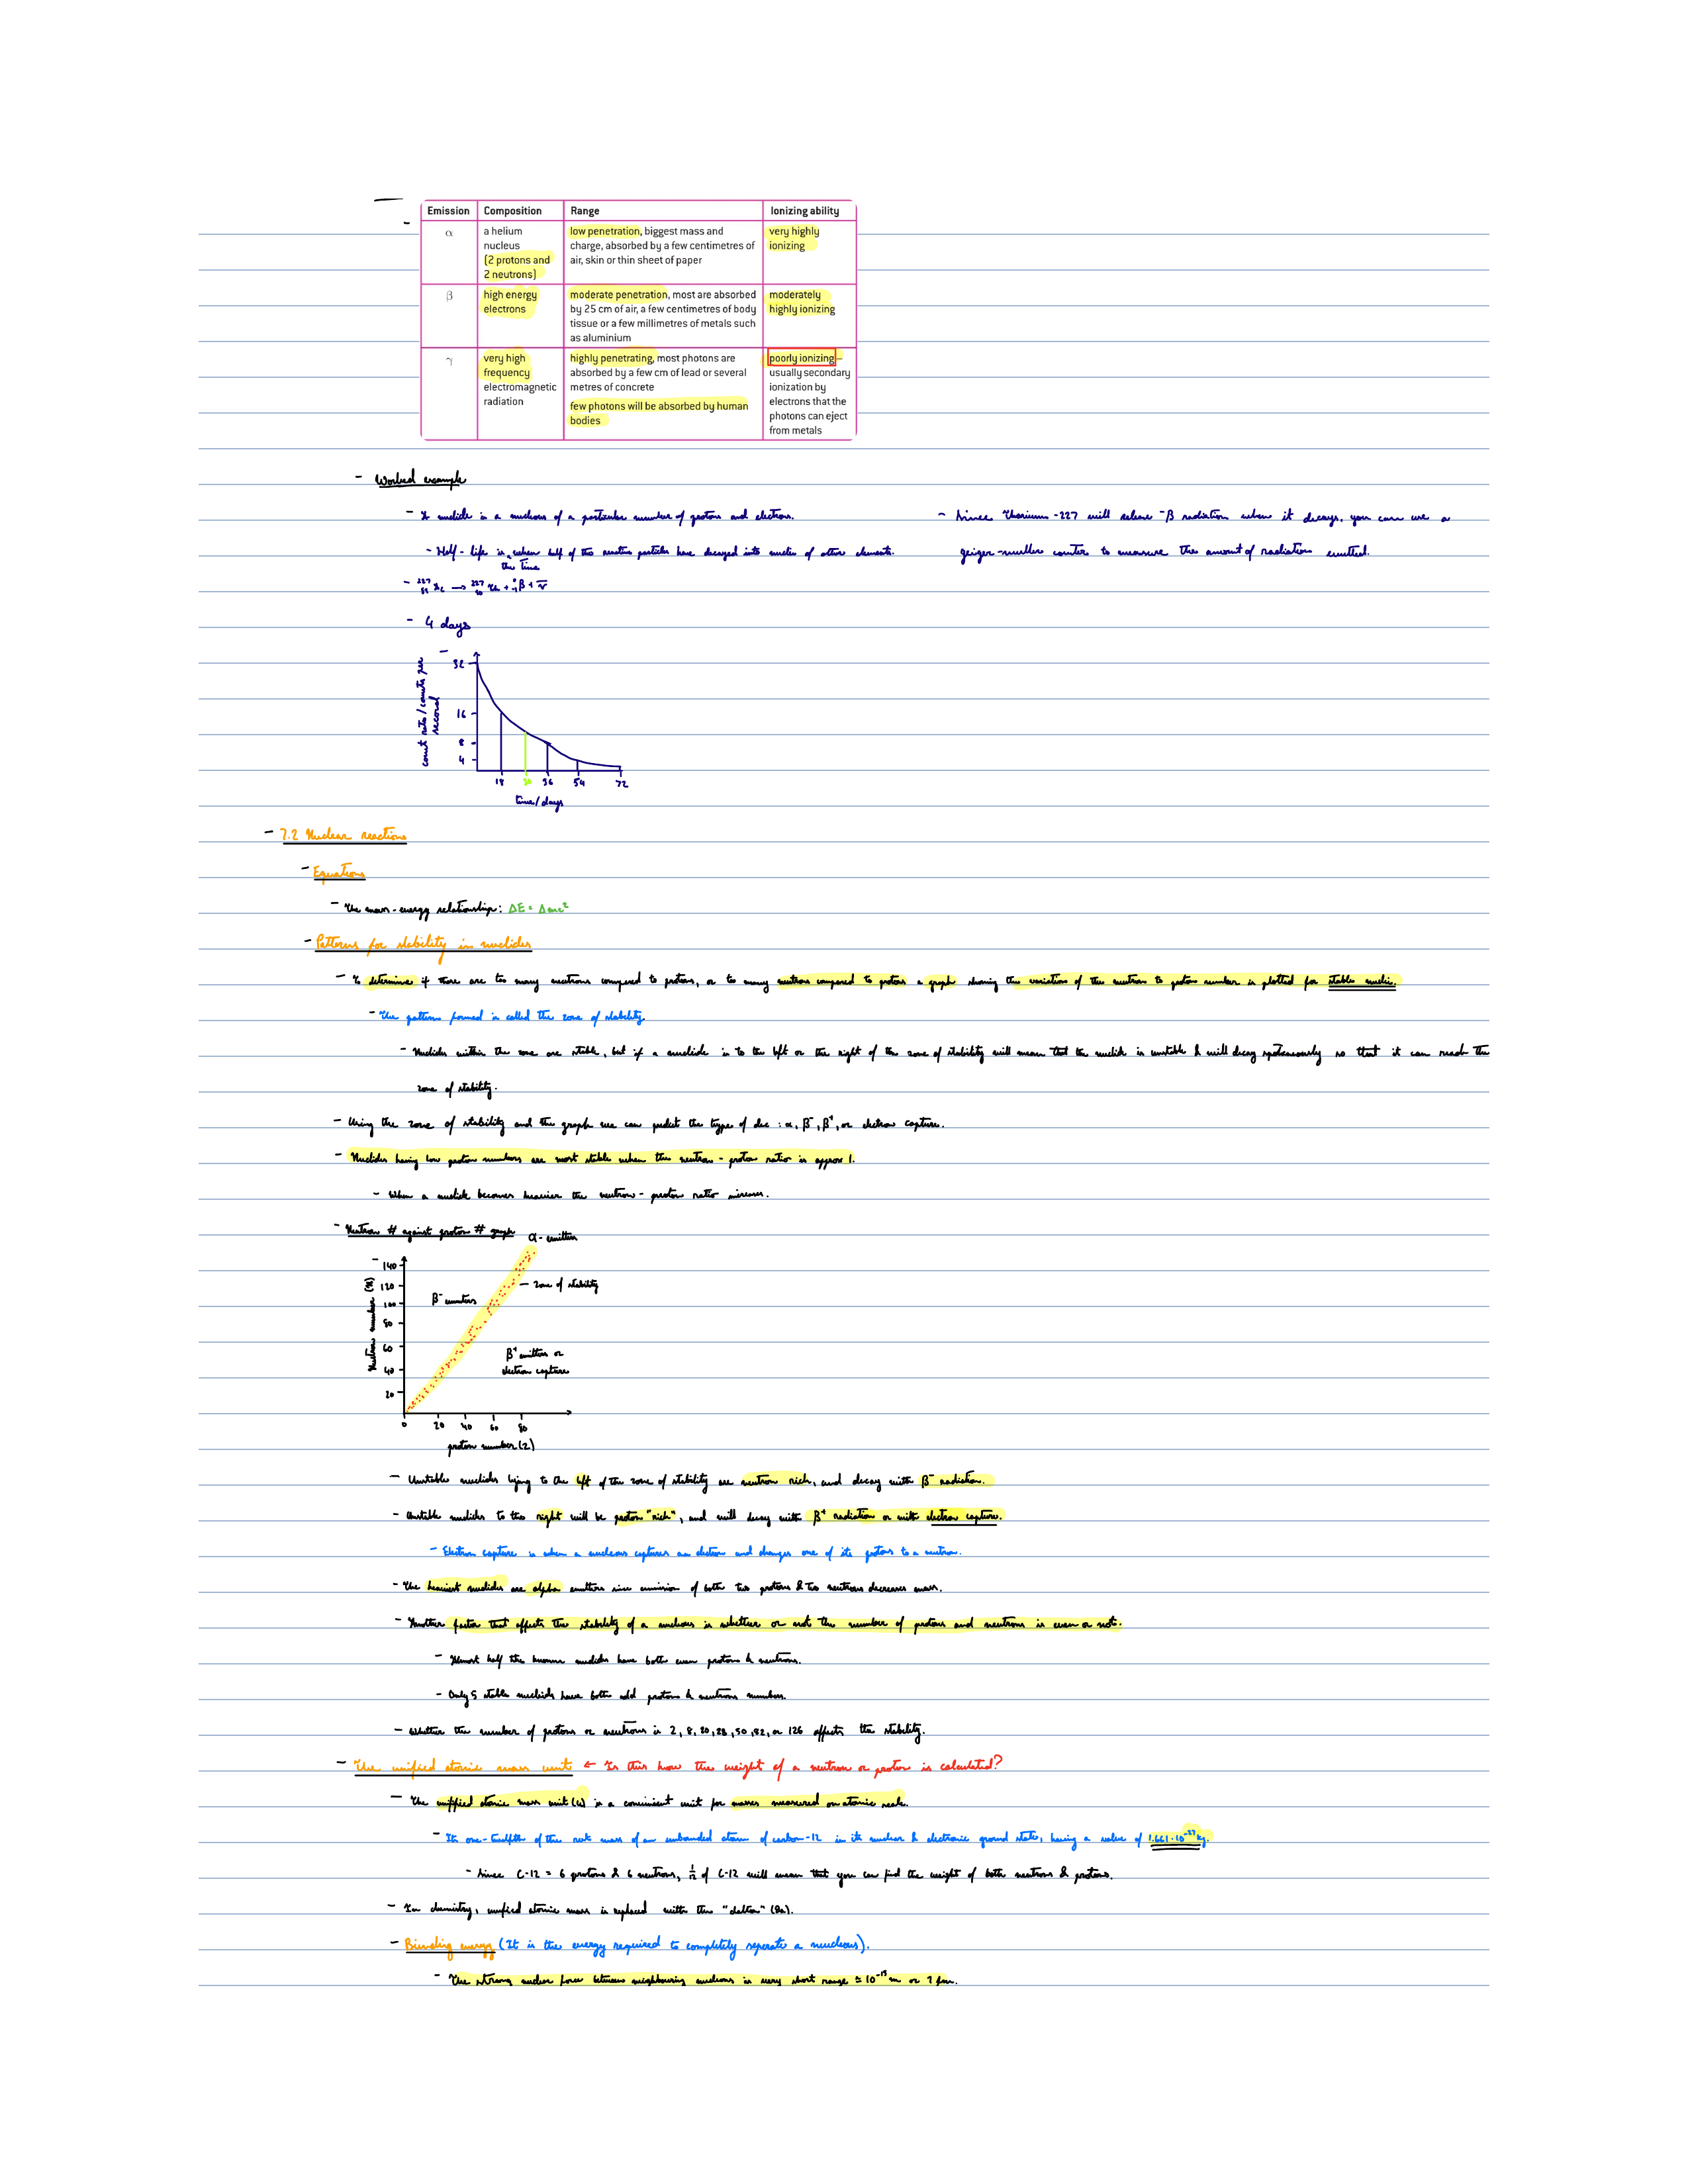 Emission Composition Range Ionizing ability
α a helium nucleus (2 protons and 2 neutrons) low penetration, biggest mass and charge, absorbed by a few centimetres of air, skin or thin sheet of paper very highly ionizing
β high energy electrons moderate penetration, most are absorbed by 25 cm of air, a few centimetres of body tissue or a few millimetres of metals such as aluminium moderately highly ionizing
γ very high frequency electromagnetic radiation highly penetrating, most photons are absorbed by a few cm of lead or several metres of concrete few photons will be absorbed by human bodies poorly ionizing – usually secondary ionization by electrons that the photons can eject from metals
- Worked example
- A nuclide is a nucleous of a particular number of protons and electrons.
- Half-life is the time when half of the particles have decayed into nuclei of other elements.
- ²²⁷₈₉Ac → ²²⁷₉₀Th + ⁰₋₁β + ν̅
- 4 days
- Since Thorium-227 will release -β radiation when it decays, you can use a
geiger-muller counter to measure the amount of radiation emitted.
count rate/counts per second
32
16
8
4
18 36 54 72
time/days
- 7.2 Nuclear reactions
- Equations
- The mass-energy relationship: ΔE = Δmc²
- Patterns for stability in nuclides
- To determine if there are too many neutrons compared to protons, or too many neutrons compared to protons a graph showing the variation of the neutron to proton number is plotted for stable nuclei.
- The pattern formed is called the zone of stability.
- Nuclides within the zone are stable, but if a nuclide is to the left or the right of the zone of stability will mean that the nuclide is unstable & will decay spontaneously so that it can reach the
zone of stability.
- Using the zone of stability and the graph we can predict the type of dec : α, β⁻, β⁺, or electron capture.
- Nuclides having low proton numbers are most stable when the neutron-proton ratio is approx 1.
- When a nuclide becomes heavier the neutron-proton ratio increases.
- Neutron # against proton # graph
α-emitters
Neutron number (N)
140
120
100
80
60
40
20
0 20 40 60 80
proton number (Z)
β⁻ emitters
zone of stability
β⁺ emitters or
electron capture
- Unstable nuclides lying to the left of the zone of stability are neutron rich, and decay with β⁻ radiation.
- Unstable nuclides to the right will be proton "rich", and will decay with β⁺ radiation or with electron capture.
- Electron capture is when a nucleous captures an electron and changes one of its protons to a neutron.
- The heaviest nuclides are alpha emitters since emission of both two protons & two neutrons decreases mass.
- Another factor that affects the stability of a nucleous is whether or not the number of protons and neutrons is even or not.
- Almost half the known nuclides have both even protons & neutrons.
- Only 5 stable nuclides have both odd protons & neutrons numbers.
- Whether the number of protons or neutrons is 2, 8, 20, 28, 50, 82, or 126 affects the stability.
- The unified atomic mass unit ← Is this how the weight of a neutron or proton is calculated?
- The unified atomic mass unit (u) is a convinient unit for masses measured on atomic scale.
- Its one-twelfth of the rest mass of an unbounded atom of carbon-12 in its nuclear & electronic ground state, having a value of 1.661·10⁻²⁷ kg.
- Since C-12 = 6 protons & 6 neutrons, 1/12 of C-12 will mean that you can find the weight of both neutrons & protons.
- In chemistry, unified atomic mass is replaced with the "dalton" (Da).
- Binding energy (It is the energy required to completely seperate a nucleous).
- The strong nuclear force between neighbouring nucleons is very short range ≈ 10⁻¹⁵ m or 1 fm.